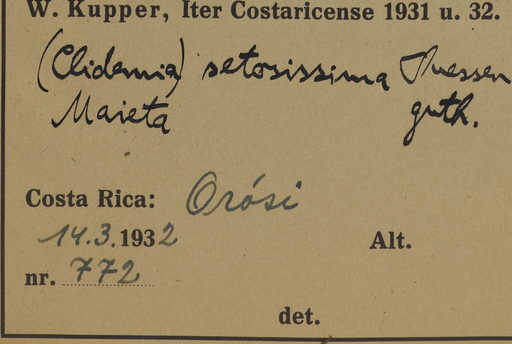 W. Kupper, Iter Costaricense 1931 u. 32.
(Clidemia) setosissima
Maieta
Costa Rica: Orósi
14.3.1932 Alt.
nr. 772
det.